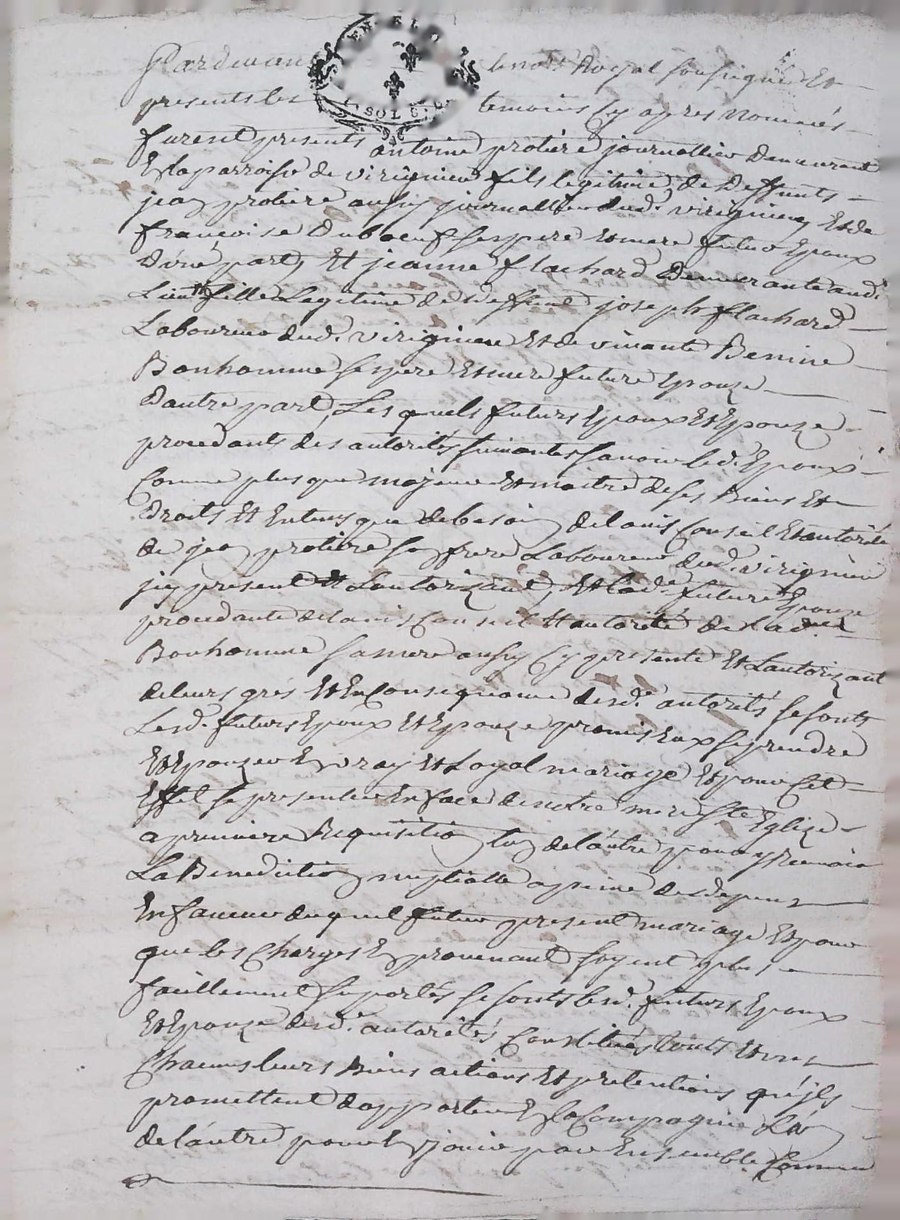 Pardevant le not.re Royal soussigné Et
EN FLO
SOL 6.
presents les temoins Cy apres nommés
furent presents antoine protiere journallier Demeurant
En la parroisse de virigneu fils legitime de Deffunts
jean protiere aussy journallier dud. virigneu Et de
françoise Duboeuf ses pere Et mere futur Epoux
D'une part, Et jeanne flachard Demeurante aud.
Lieu fille Legitime de deffunt joseph flachard
Laboureur dud. virigneu Et de vivante Benine
Bonhomme ses pere Et mere future Epouze
Dautre part, Les quels futurs Epoux Et Epouze
procedants des autorités suivantes scavoir led. Epoux
Comme plus que majeur Et maitre de ses Biens Et
droits Et Entens que de besoin de lavis Conseil Et autorité
de jean protiere son frere Laboureur dud. virigneu
jcy present Et Lautorizant, Et lad. future Epouze
procedante de lavis Conseil Et autorité de lad.
Bonhomme sa mere aussy Cy presente Et Lautorizant
de leurs grés Et En Consequance desd. autorités se sonts
Lesd. futurs Epoux Et Epouze promis Eux se prendre
Et Epouzer En vray Et Loyal mariage Et pour Cet
Effet se presenter En face de notre mere Ste Eglize
a premiere Requisition lun de lautre pour y Recevoir
La Benediction nuptialle a peine des depens
En faveur du quel futur present mariage Et pour
que les Charges En provenant soyent plus
facillement suportés se sonts lesd. futurs Epoux
Et Epouze desd. autorités Constitués touts Et uns
Chacuns leurs Biens actions Et pretentions qu'jls
promettent dapporter En la Compagnie Lun
de lautre pour En jouir par Ensemble Comme